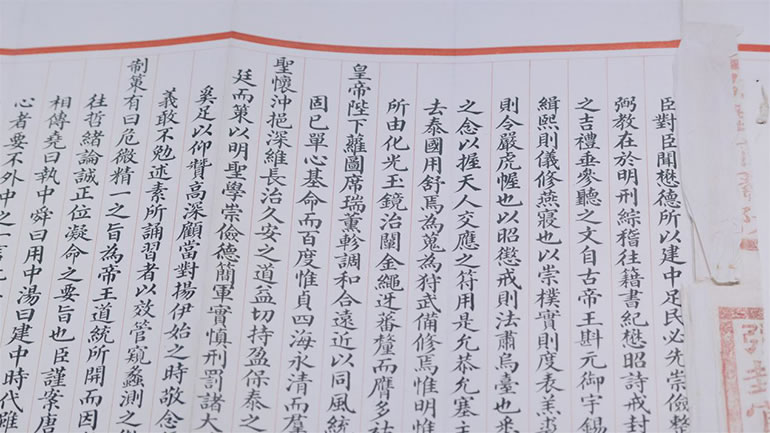 臣對臣聞懋德所以建中足民必先崇儉整
弼教在於明刑綜稽往籍書紀懋昭詩戒封
之吉禮垂參聽之文自古帝王斟元御宇錫
緝熙則儀修燕寢也以崇樸實則度表羔裘
則令嚴虎幄也以昭懲戒則法肅烏臺也
之念以握天人交應之符用是允恭允塞
去泰國用舒焉為蒐為狩武備修焉惟明惟
所由化光玉鏡治闡金繩迓蕃釐而膺多祜
皇帝陛下蘿圖席瑞薰軫調和合遠近以同風統
固已單心基命而百度惟貞四海永清而羣
聖懷沖挹深維長治久安之道益切持盈保泰之
廷而策以明聖學崇儉德蒐軍實慎刑罰諸大
奚足以仰贊高深顧當對揚伊始之時敬念
義敢不勉述素所誦習者以效管窺蠡測之
制策有曰危微精一之旨為帝王道統所開而因
往哲緒論誠正位凝命之要旨也臣謹案唐
相傳堯曰執中舜曰用中湯曰建中時代雖
心者要不外中之一言